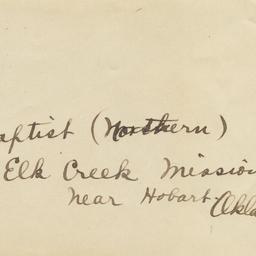 aptist (Northern)
Elk Creek Mission
near Hobart Okla